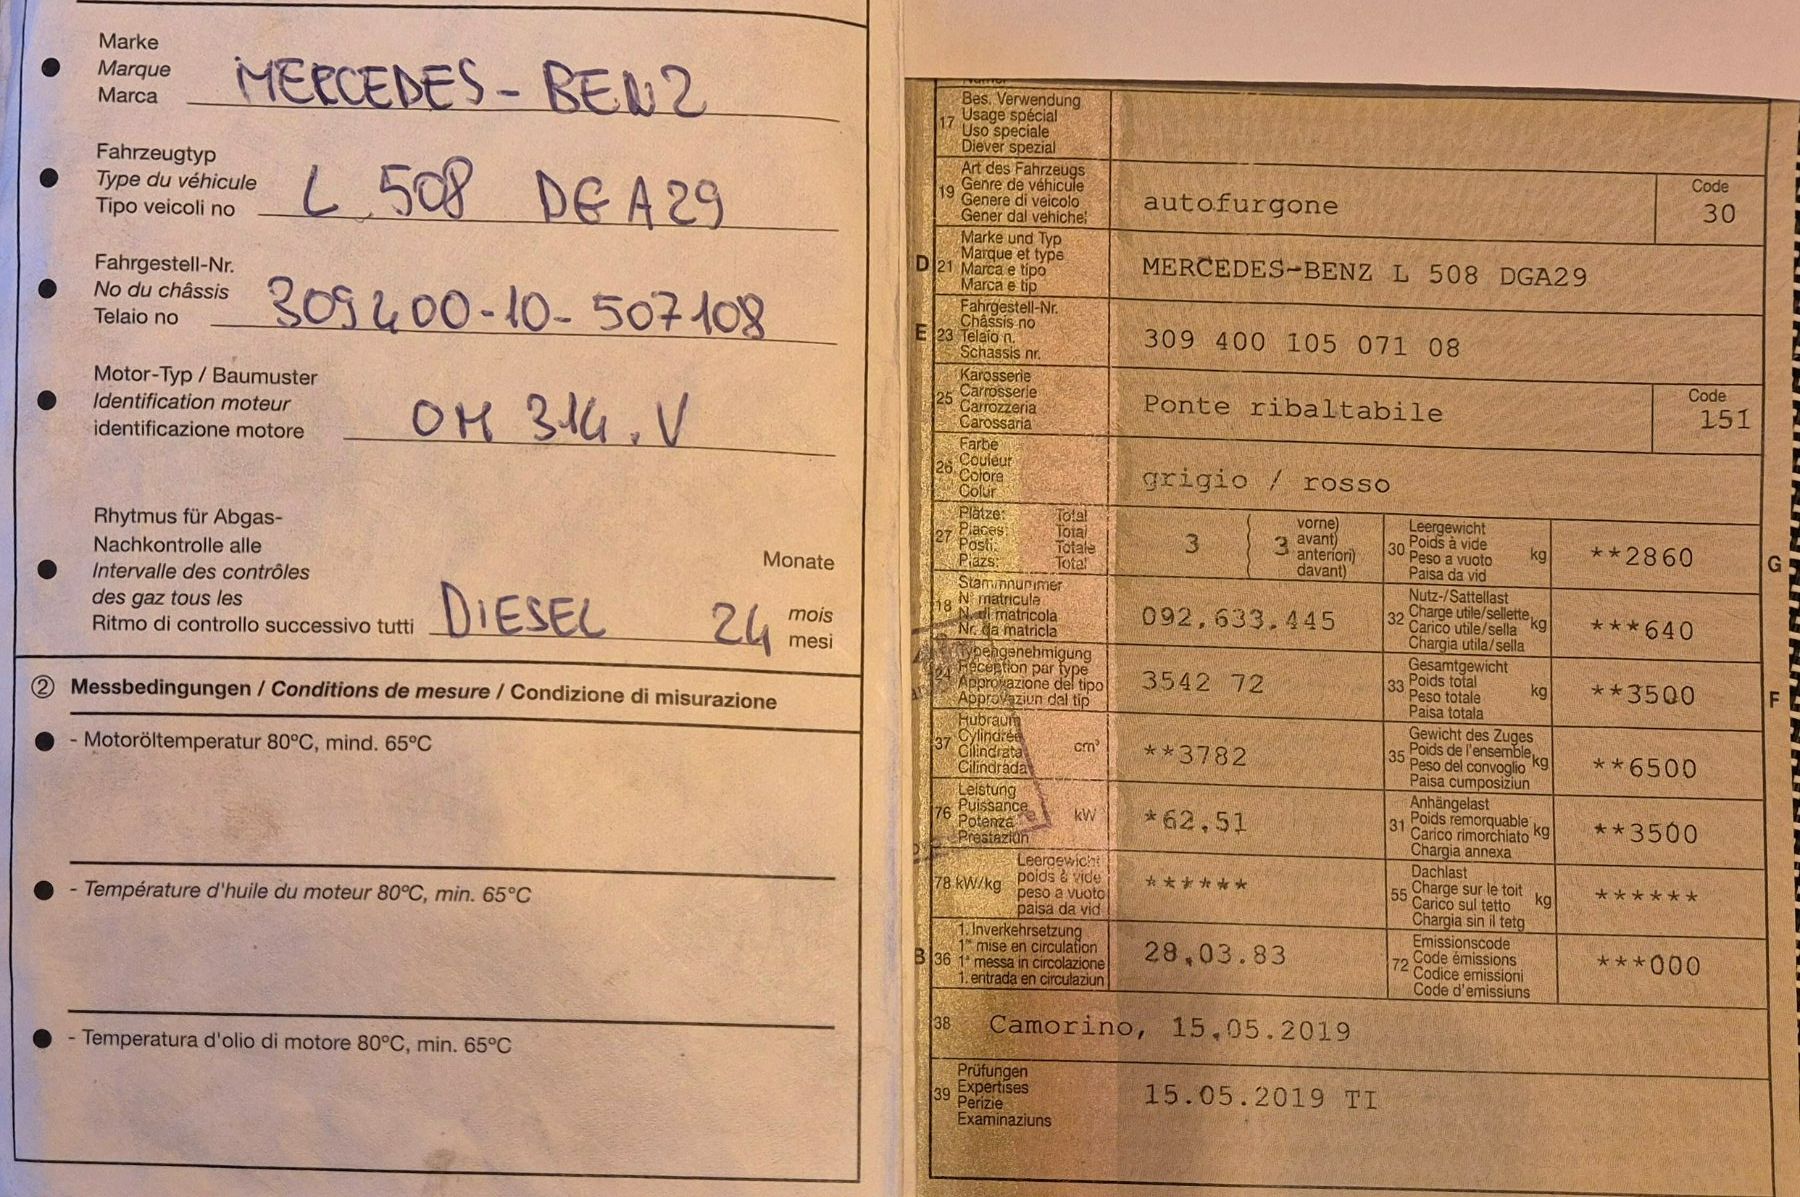 Marke
Marque
Marca MERCEDES-BENZ
Fahrzeugtyp
Type du véhicule
Tipo veicoli no L 508 DGA29
Fahrgestell-Nr.
No du châssis
Telaio no 309400-10-507108
Motor-Typ / Baumuster
Identification moteur
identificazione motore OM 314.V
Rhytmus für Abgas-
Nachkontrolle alle Monate
Intervalle des contrôles
des gaz tous les mois
Ritmo di controllo successivo tutti DIESEL 24 mesi
② Messbedingungen / Conditions de mesure / Condizione di misurazione
- Motoröltemperatur 80°C, mind. 65°C
- Température d'huile du moteur 80°C, min. 65°C
- Temperatura d'olio di motore 80°C, min. 65°C
17 Bes. Verwendung
Usage spécial
Uso speciale
Diever spezial
19 Art des Fahrzeugs
Genre de véhicule
Genere di veicolo
Gener dal vehichel
autofurgone
Code
30
D 21 Marke und Typ
Marque et type
Marca e tipo
Marca e tip
MERCEDES-BENZ L 508 DGA29
E 23 Fahrgestell-Nr.
Châssis no
Telaio n.
Schassis nr.
309 400 105 071 08
25 Karosserie
Carrosserie
Carrozzeria
Carossaria
Ponte ribaltabile
Code
151
26 Farbe
Couleur
Colore
Colur
grigio / rosso
27 Plätze: Total
Places: Total
Posti: Totale
Plazs: Total
3
3 vorne)
avant)
anteriori)
davant)
30 Leergewicht
Poids à vide
Peso a vuoto kg
Paisa da vid
**2860
G
18 Stammnummer
N° matricule
N. di matricola
Nr. da matricla
092.633.445
32 Nutz-/Sattellast
Charge utile/sellette
Carico utile/sella kg
Chargia utila/sella
***640
24 Typengenehmigung
Réception par type
Approvazione del tipo
Approvaziun dal tip
3542 72
33 Gesamtgewicht
Poids total
Peso totale kg
Paisa totala
**3500
F
37 Hubraum
Cylindrée
Cilindrata cm³
Cilindrada
**3782
35 Gewicht des Zuges
Poids de l'ensemble
Peso del convoglio kg
Paisa cumposiziun
**6500
76 Leistung
Puissance
Potenza kW
Prestaziun
*62.51
31 Anhängelast
Poids remorquable
Carico rimorchiato kg
Chargia annexa
**3500
78 kW/kg Leergewicht
poids à vide
peso a vuoto
paisa da vid
******
55 Dachlast
Charge sur le toit
Carico sul tetto kg
Chargia sin il tetg
******
B 36 1. Inverkehrsetzung
1re mise en circulation
1a messa in circolazione
1. entrada en circulaziun
28.03.83
72 Emissionscode
Code émissions
Codice emissioni
Code d'emissiuns
***000
38 Camorino, 15.05.2019
39 Prüfungen
Expertises
Perizie
Examinaziuns
15.05.2019 TI